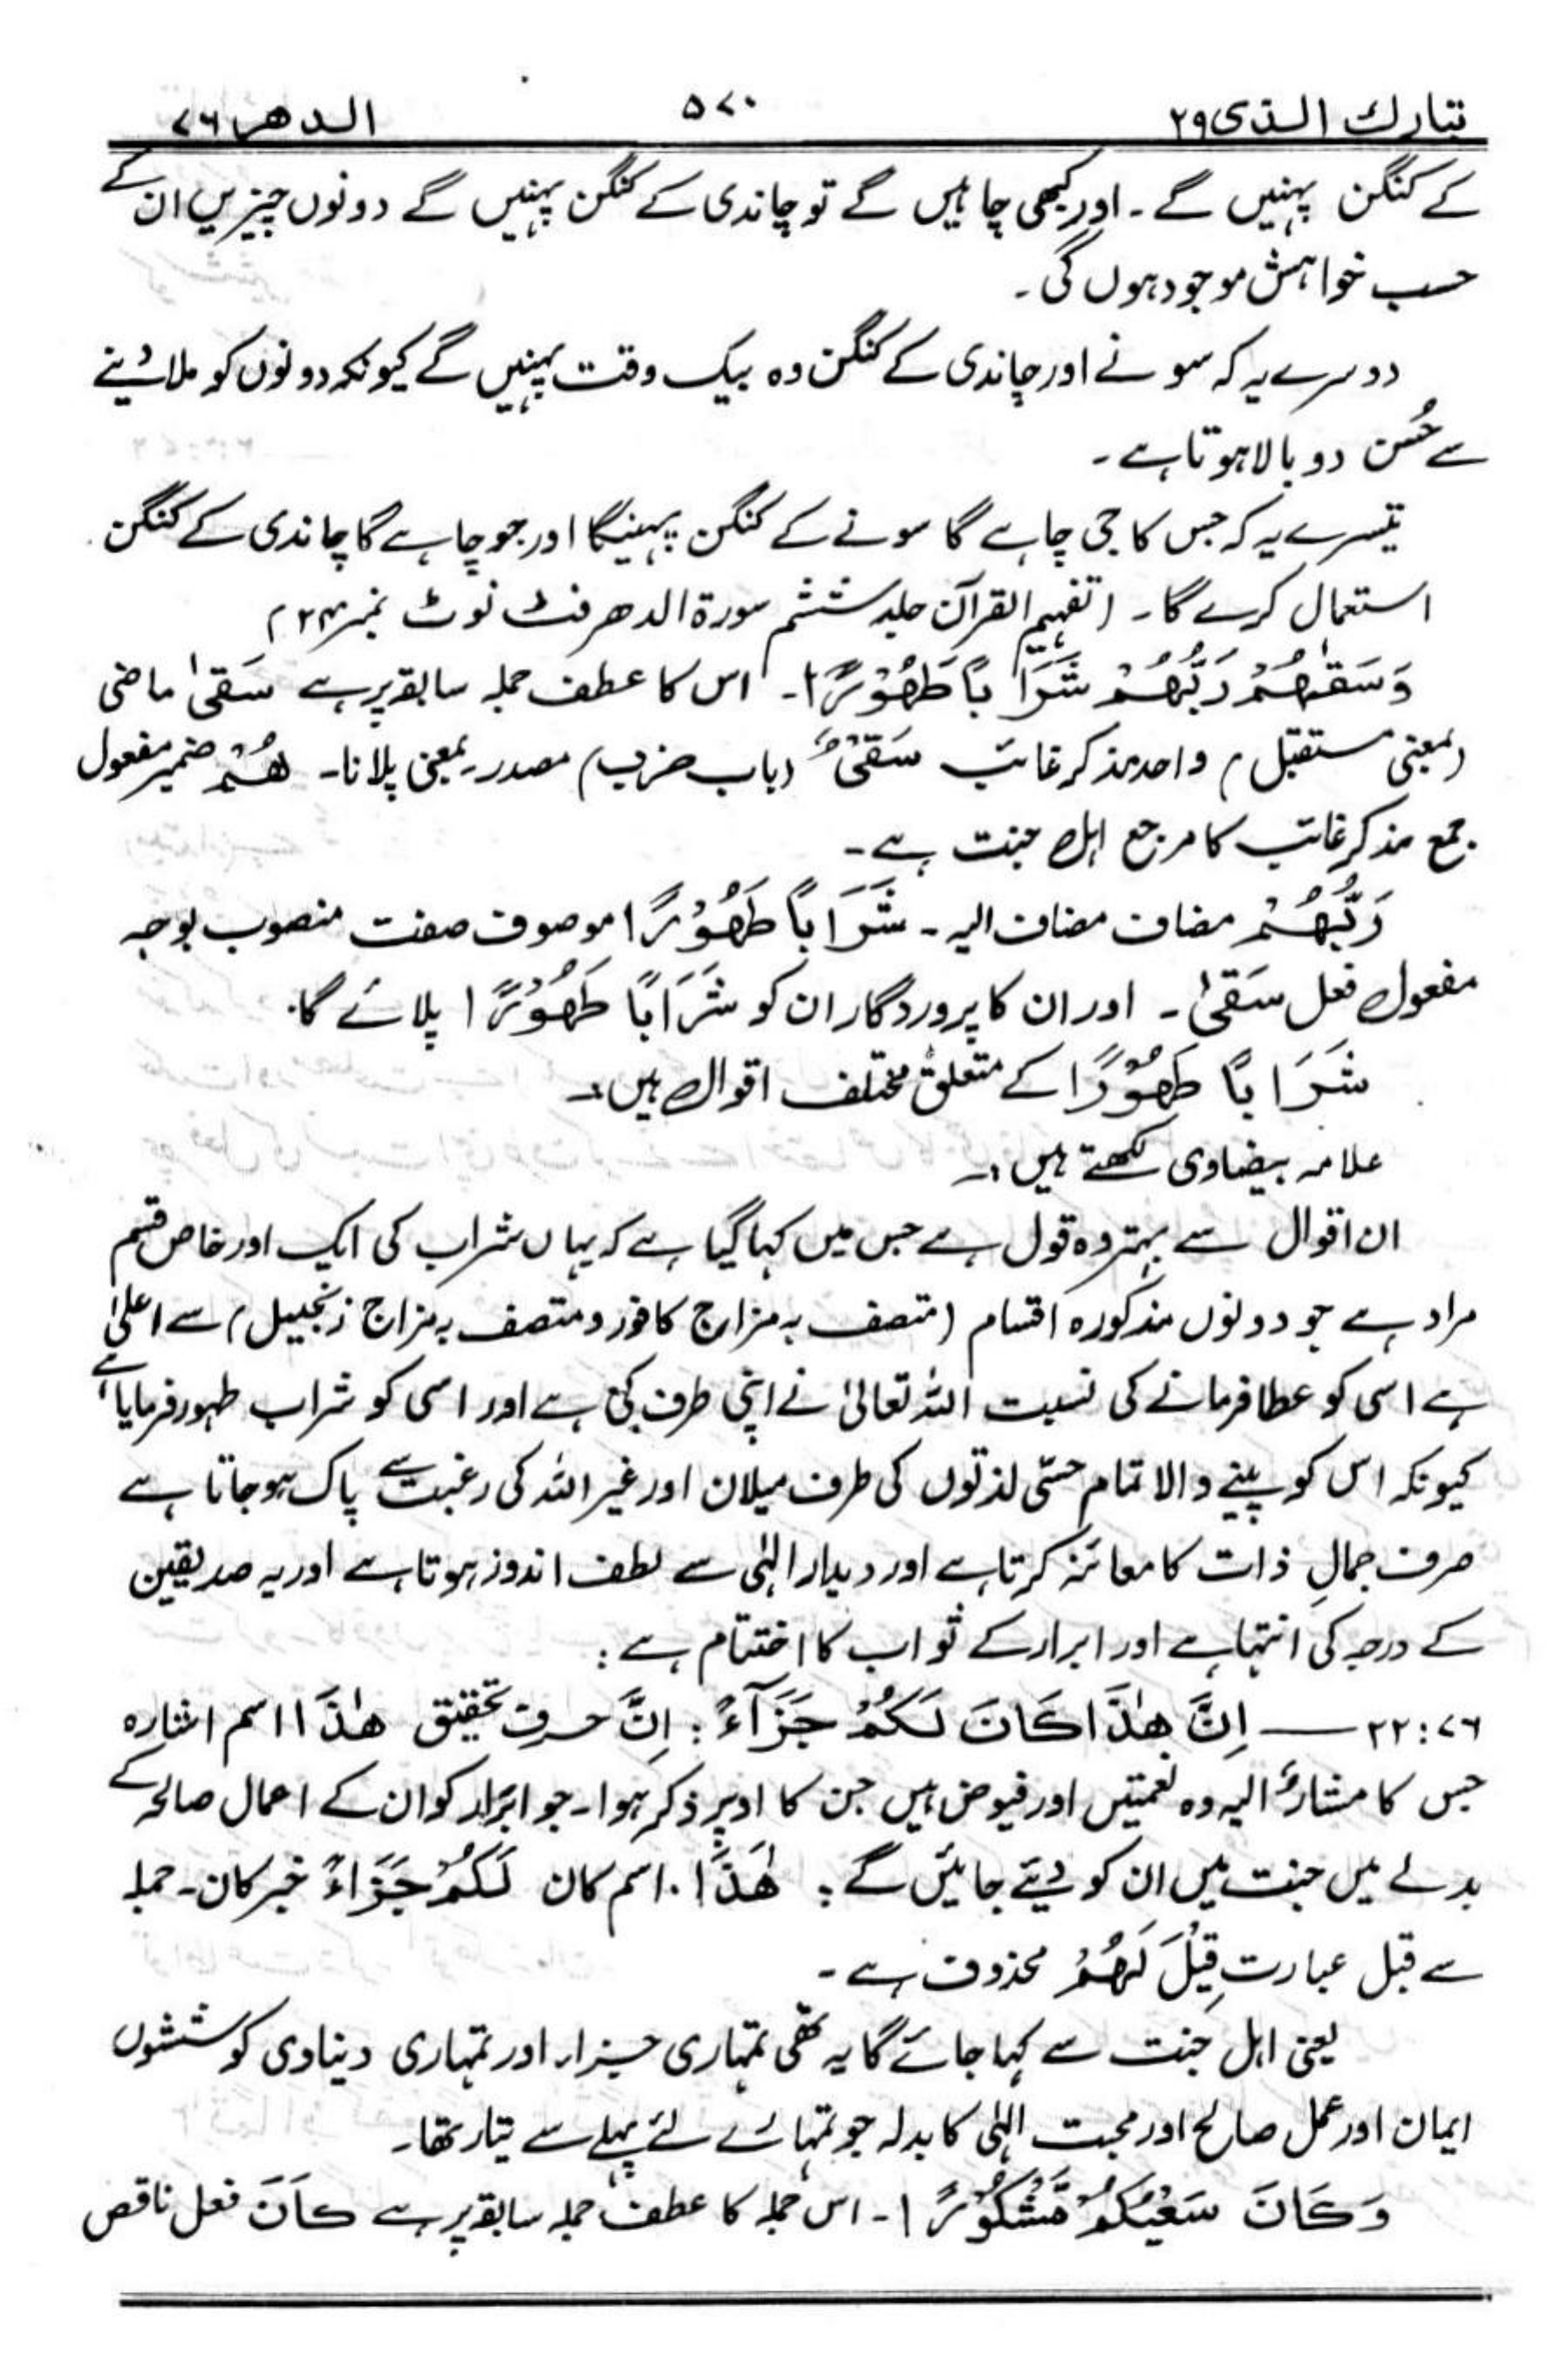 تبارك الذى ۲۹ ۵۷۰ الدهر ۷۶
کے کنگن پہنیں گے۔ اور کبھی چاہیں گے تو چاندی کے کنگن پہنیں گے دونوں چیزیں ان کے
حسب خواہش موجود ہوں گی۔
دوسرے یہ کہ سونے اور چاندی کے کنگن وہ بیک وقت پہنیں گے کیونکہ دونوں کو ملا دینے
سے حُسن دوبالا ہوتا ہے۔
تیسرے یہ کہ جس کا جی چاہے گا سونے کے کنگن پہنیگا اور جو چاہے گا چاندی کے کنگن
استعمال کرے گا۔ (تفہیم القرآن جلد ششم سورۃ الدھر فٹ نوٹ نمبر ۲۴)
وَسَقٰىهُمْ رَبُّهُمْ شَرَابًا طَهُوْرًا۔ اس کا عطف جملہ سابقہ پر ہے سَقیٰ ماضی
(بمعنی مستقبل) واحد مذکر غائب سَقْیٌ (باب ضرب) مصدر۔ بمعنی پلانا۔ هُمْ ضمیر مفعول
جمع مذکر غائب کا مرجع اہل جنت ہے۔
رَبُّهُمْ مضاف مضاف الیہ۔ شَرَابًا طَهُوْرًا موصوف صفت منصوب بوجہ
مفعول فعل سَقیٰ۔ اور ان کا پروردگار ان کو شَرَابًا طَهُوْرًا پلائے گا۔
شَرَابًا طَهُوْرًا کے متعلق مختلف اقوال ہیں:۔
علامہ بیضاوی لکھتے ہیں:۔
ان اقوال سے بہتر وہ قول ہے جس میں کہا گیا ہے کہ یہاں شراب کی ایک اور خاص قسم
مراد ہے جو دونوں مذکورہ اقسام (متصف بہ مزاج کافور و متصف بہ مزاج زنجبیل) سے اعلیٰ
ہے اسی کو عطا فرمانے کی نسبت اللہ تعالیٰ نے اپنی طرف کی ہے اور اسی کو شراب طہور فرمایا ہے
کیونکہ اس کو پینے والا تمام حسّی لذتوں کی طرف میلان اور غیر اللہ کی رغبت سے پاک ہو جاتا ہے
صرف جمالِ ذات کا معائنہ کرتا ہے اور دیدار الٰہی سے لطف اندوز ہوتا ہے اور یہ صدیقین
کے درجہ کی انتہا ہے اور ابرار کے ثواب کا اختتام ہے:
۷۶:۲۲ — اِنَّ هٰذَا كَانَ لَكُمْ جَزَآءً: اِنَّ حرف تحقیق هٰذَا اسم اشارہ
جس کا مشارٌ الیہ وہ نعمتیں اور فیوض ہیں جن کا اوپر ذکر ہوا۔ جو ابرار کو ان کے اعمال صالحہ کے
بدلے میں جنت میں ان کو دیئے جائیں گے: هٰذَا۔ اسم کان لَكُمْ جَزَاءً خبر کان۔ جملہ
سے قبل عبارت قِیْلَ لَهُمْ محذوف ہے۔
یعنی اہل جنت سے کہا جائے گا یہ تھی تمہاری جزاء اور تمہاری دنیاوی کوششوں
ایمان اور عمل صالح اور محبت الٰہی کا بدلہ جو تمہارے لئے پہلے سے تیار تھا۔
وَكَانَ سَعْيُكُمْ مَّشْكُوْرًا۔ اس جملہ کا عطف جملہ سابقہ پر ہے كَانَ فعل ناقص